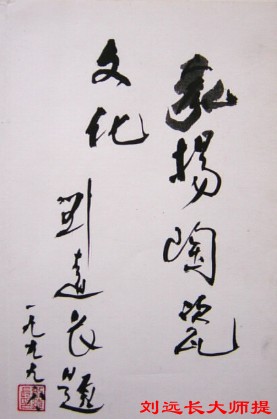 弘揚陶瓷
文化
劉遠長題
一九九九
刘远长大师提